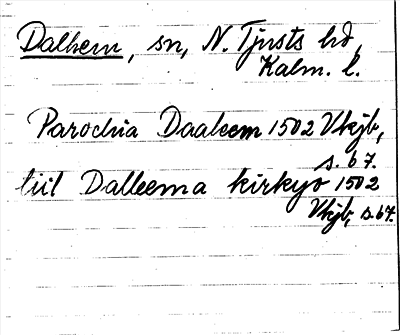 Dalhem, sn, N. Tjusts hd,
Kalm. l.
Parochia Daalem 1502 Vkjb,
s. 67.
tiil Dalleema kirkyo 1502
Vkjb, s. 67.